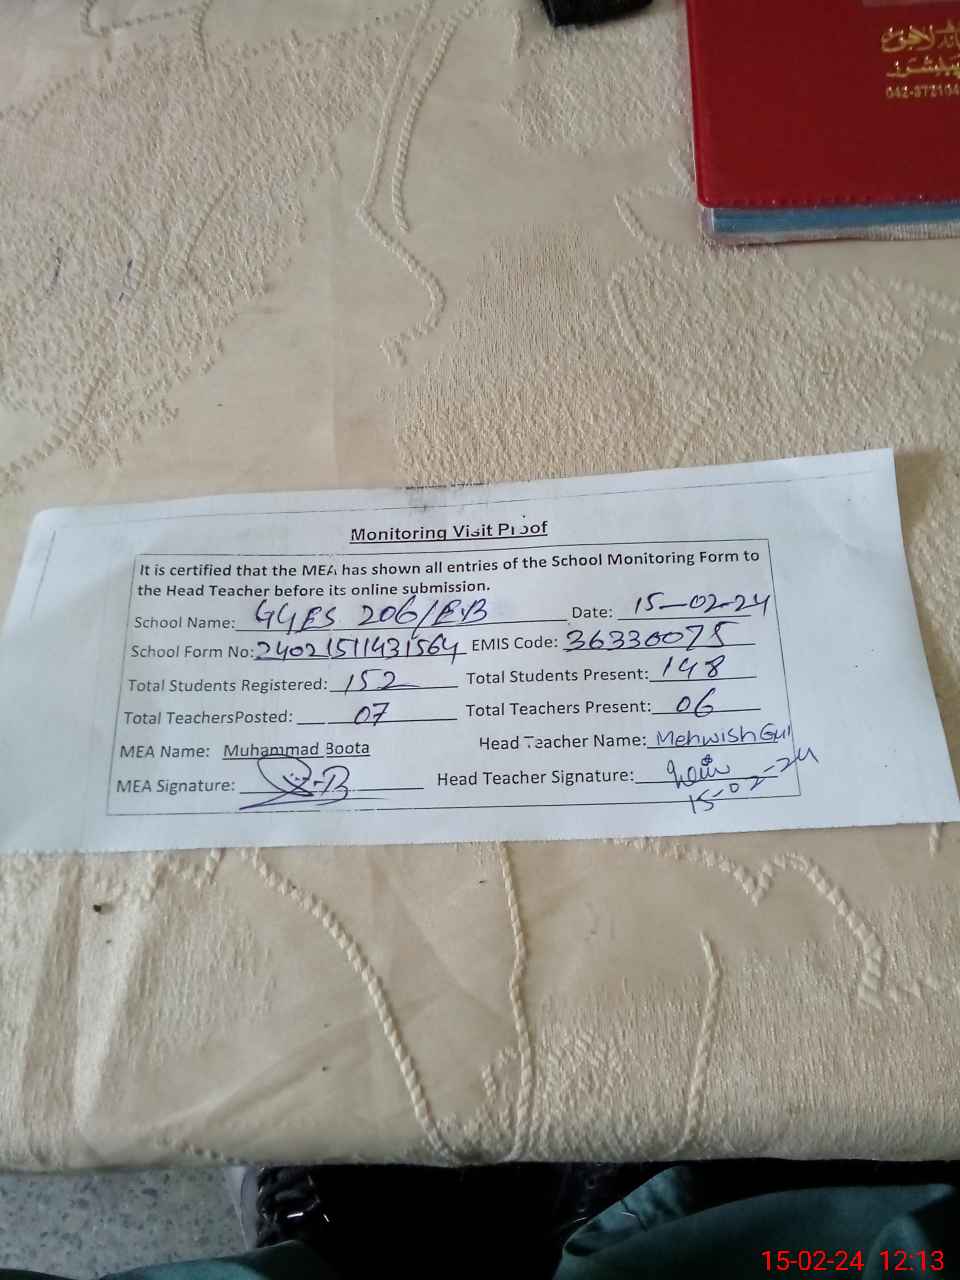 لاجواب
پبلیشرز
042-372104
Monitoring Visit Proof
It is certified that the MEA has shown all entries of the School Monitoring Form to
the Head Teacher before its online submission.
School Name: GGES 206/E.B Date: 15-02-24
School Form No: 24021511431564 EMIS Code: 36330075
Total Students Registered: 152 Total Students Present: 148
Total TeachersPosted: 07 Total Teachers Present: 06
MEA Name: Muhammad Boota Head Teacher Name: Mehwish Gul
MEA Signature: Head Teacher Signature:
15-02-24
15-02-24 12:13